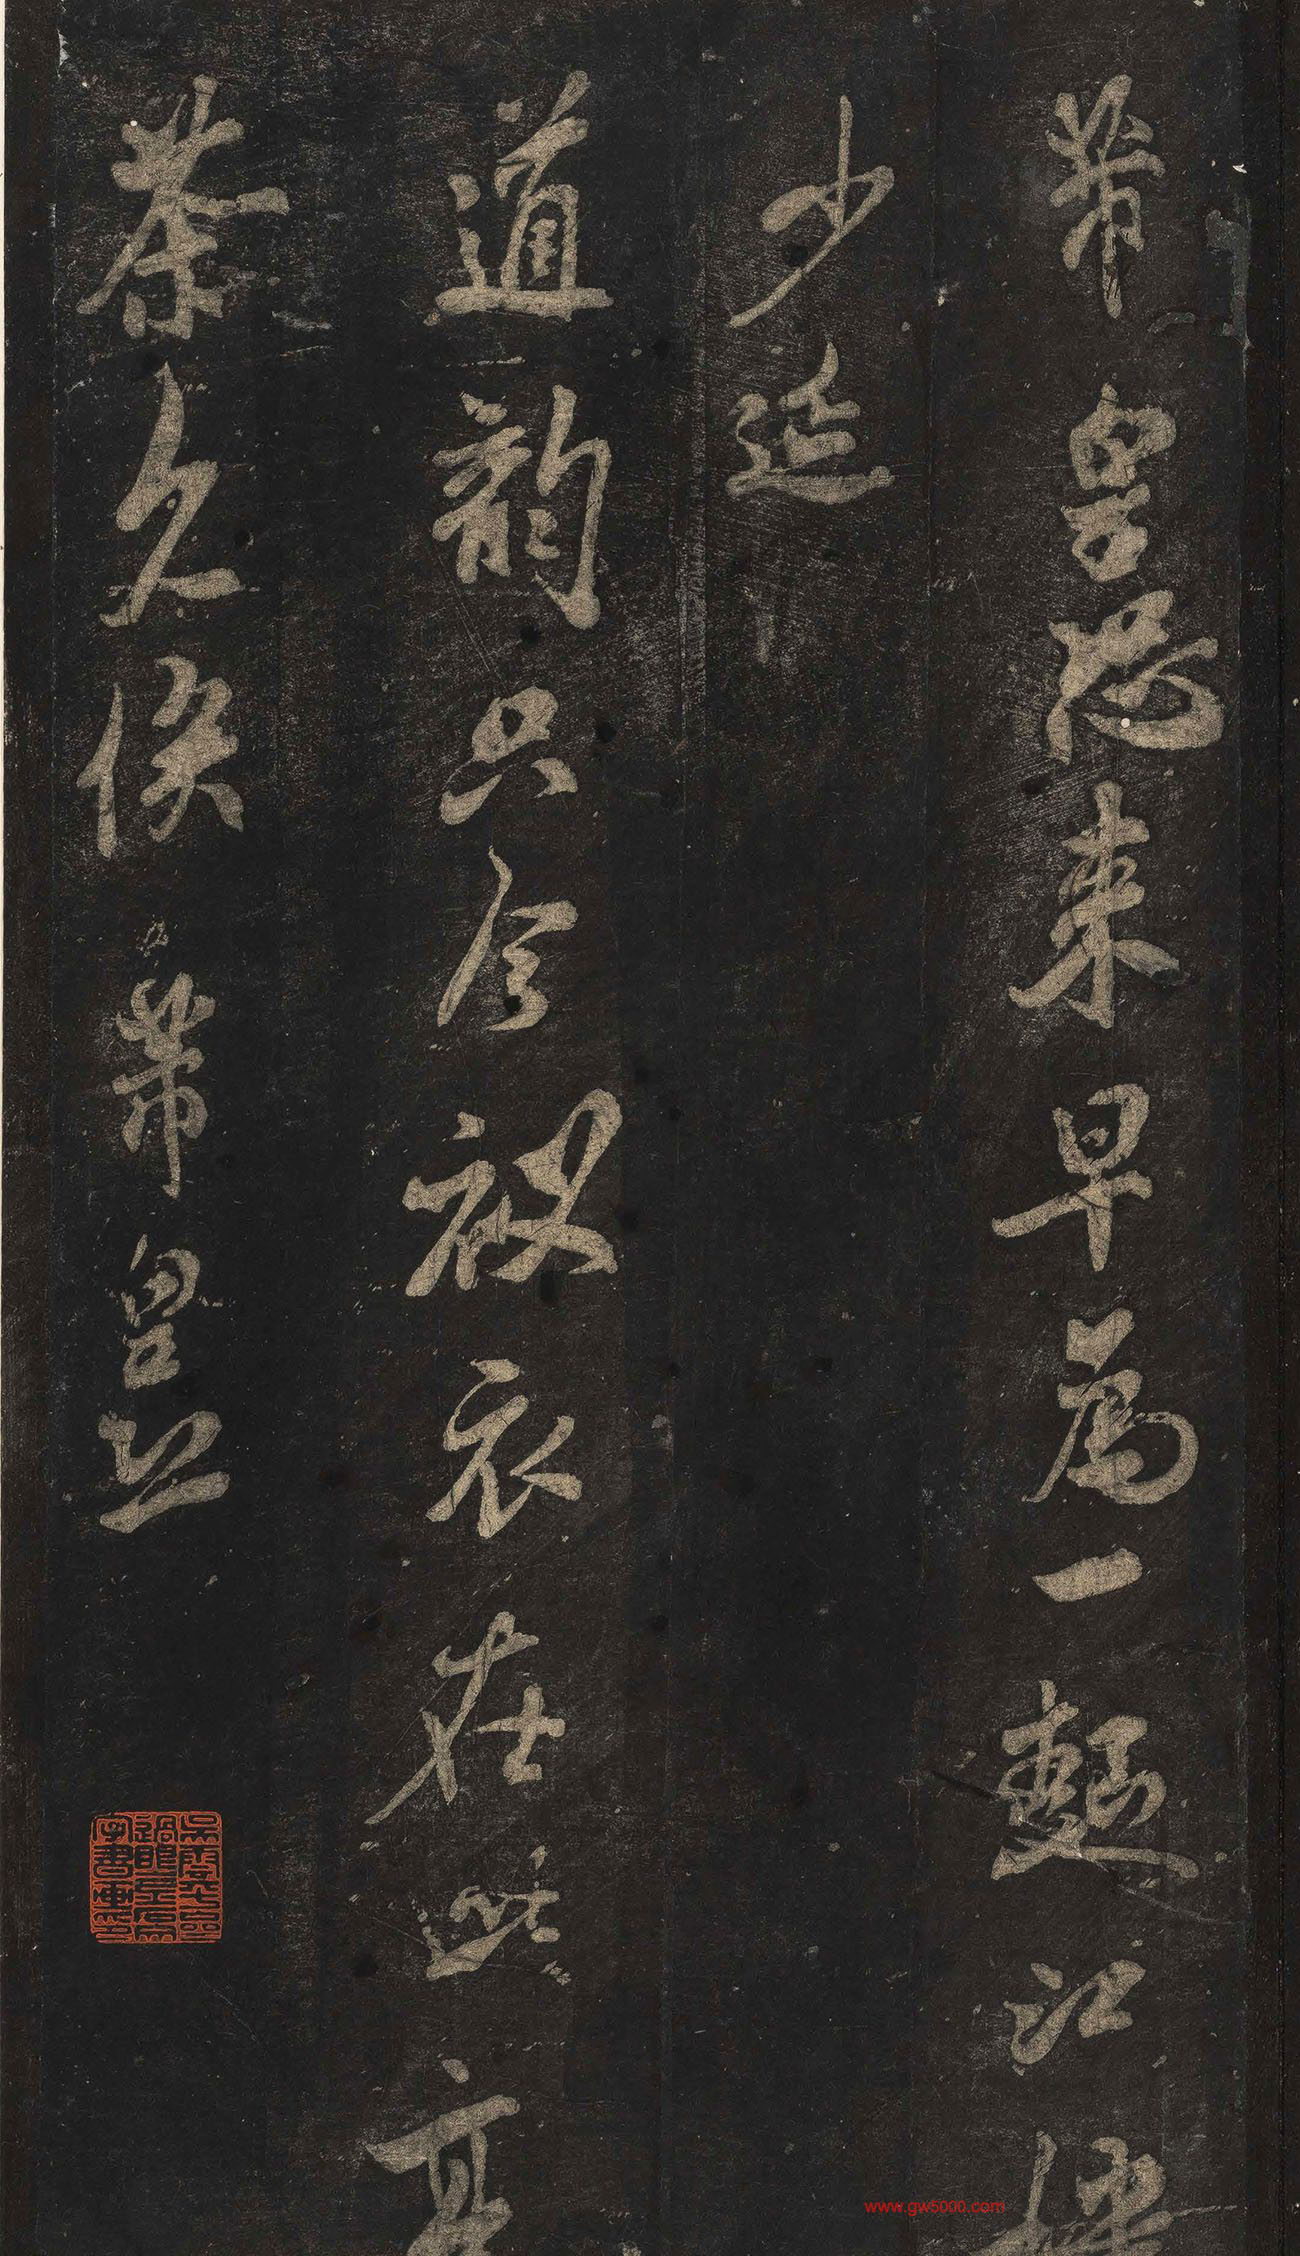 芾皇恐來早為一麵江樓
少延
道韵只今被衣在此亭
茶久俟芾皇恐
www.gw5000.com